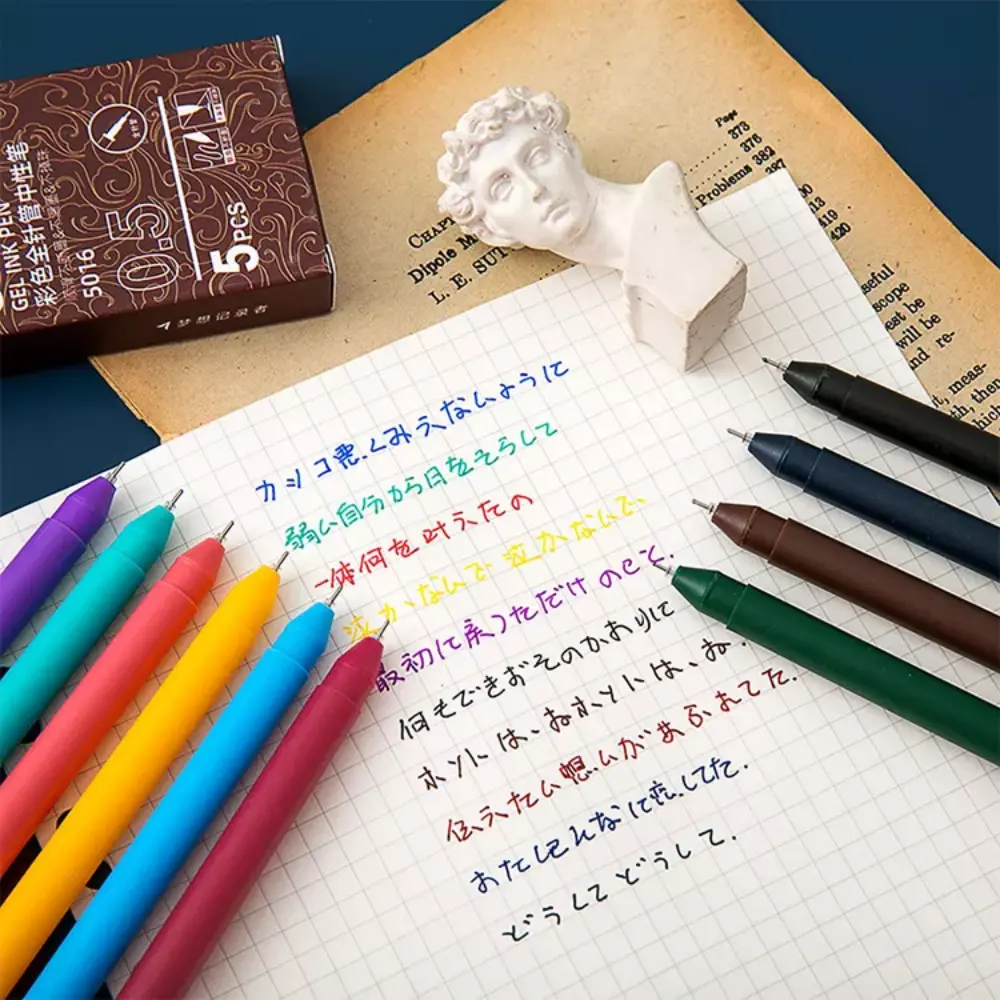 GEL INK PEN
彩色全针管中性笔
5016
0.5
5PCS
梦想记录者
CHAPT
Dipole M
L. E. SUT
Page
373
376
Problems 382
387
419
420
seful
scope
est be
will be
nd re-
t, meas-
th, then
hich
カッコ悪くみえないように
弱い自分から日をそらして
一体何を叶えたの
泣かなんで泣かないで、
最初に戻っただけのこと.
何もできおそのかおりに
ホントは、ねホントは、ね.
伝えたい想いがあふれてた.
おたしこんなに恋してた.
どうしてどうして.